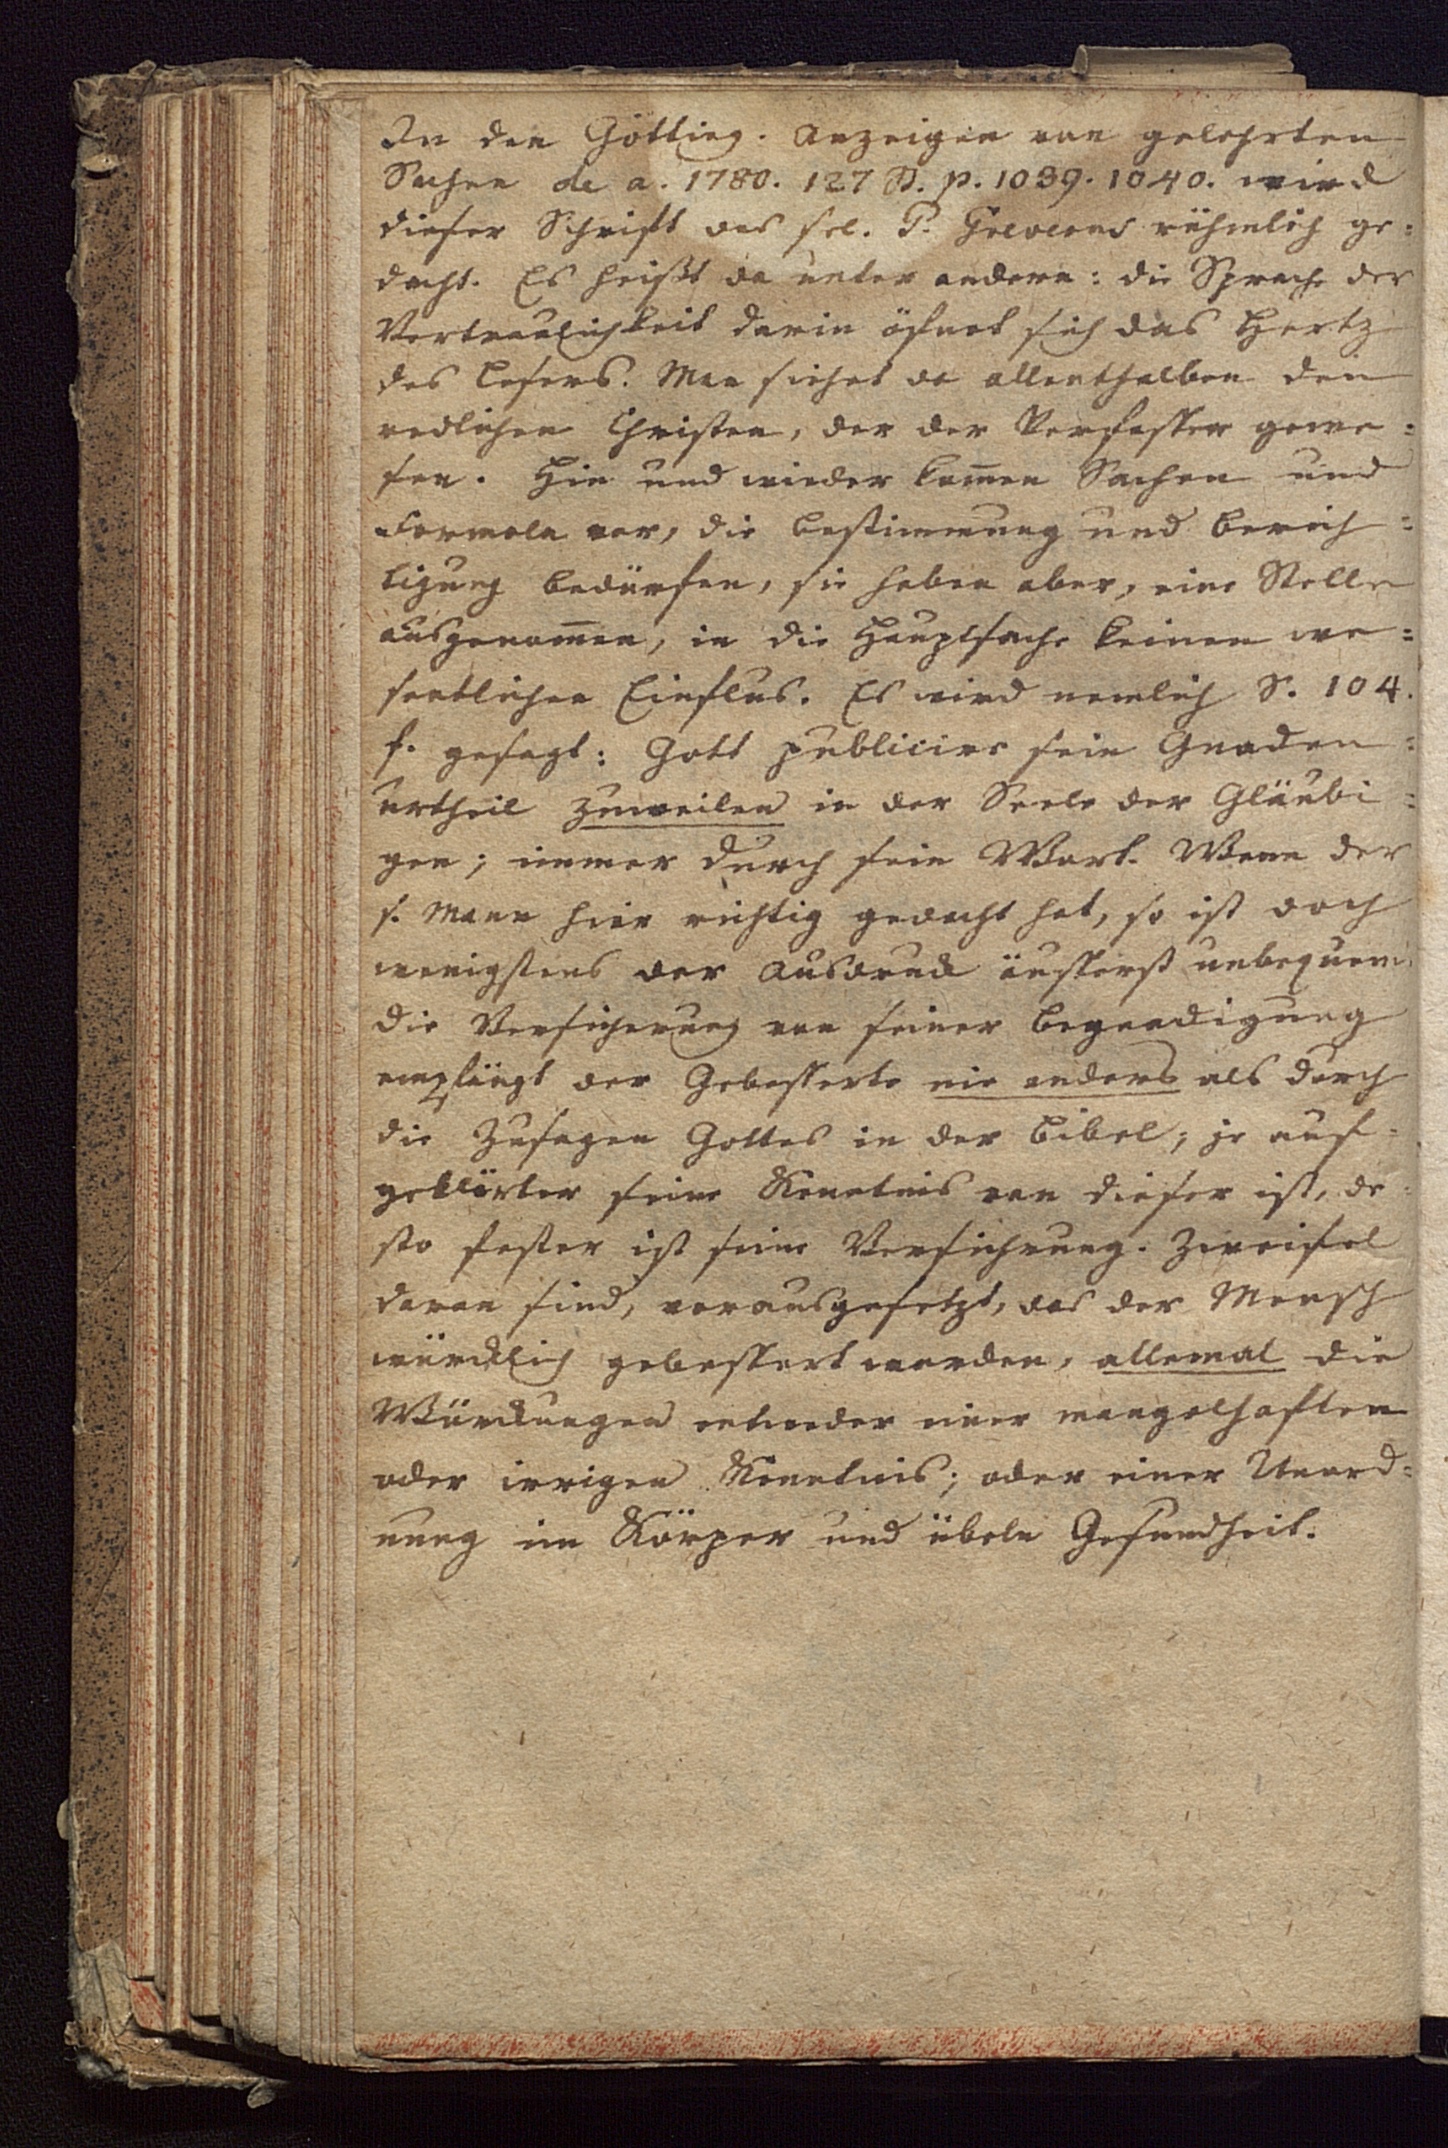 In den Götting. Anzeigen von gelehrten
Sachen de a. 1780. 127 St. p. 1039. 1040. wird
dieser Schrift des sel. P. Greverus rühmlich ge=
dacht. Es heißt da unter andern: die Sprache der
Vertraulichkeit darin öfnet sich das Hertz
des Lesers. Man siehet da allenthalben den
redlichen Christen, der der Verfasser gewe=
sen. Hin und wieder kom̅en Sachen und
Formeln vor, die Bestimmung und Berich=
tigung bedürfen, sie haben aber, eine Stelle
ausgenom̅en, in die Hauptsache keinen we=
sentlichen Einflus. Es wird nemlich S. 104.
f. gesagt: Gott publicire sein Gnaden=
urtheil zuweilen in der Seele der Gläubi=
gen; immer durch sein Wort. Wenn der
s. Mann hier richtig gedacht hat, so ist doch
wenigstens der Ausdruck äusserst unbequem.
Die Versicherung von seiner Begnadigung
empfängt der Gebesserte nie anders als durch
die Zusagen Gottes in der Bibel; je auf=
geklärter seine Kenntnis von dieser ist, de=
sto fester ist seine Versichrung. Zweifel
daran sind, vorausgesetzt, das der Mensch
würcklich gebessert worden, allemal die
Würckungen entweder einer mangelhaften
oder irrigen Kenntnis; oder einer Unord=
nung im Körper und übeln Gesundheit.